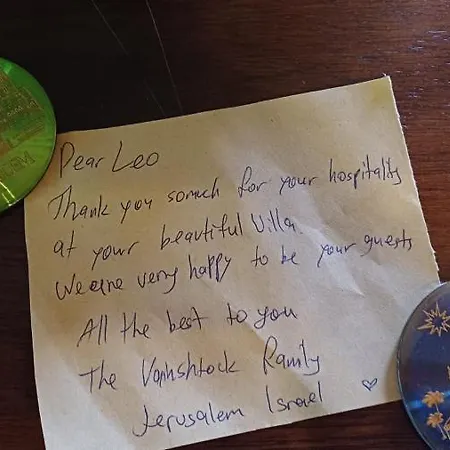 Dear Leo
Thank you somuch for your hospitality
at your beautiful Villa.
We are very happy to be your guests
All the best to you
The Vainshtock Family
Jerusalem Israel